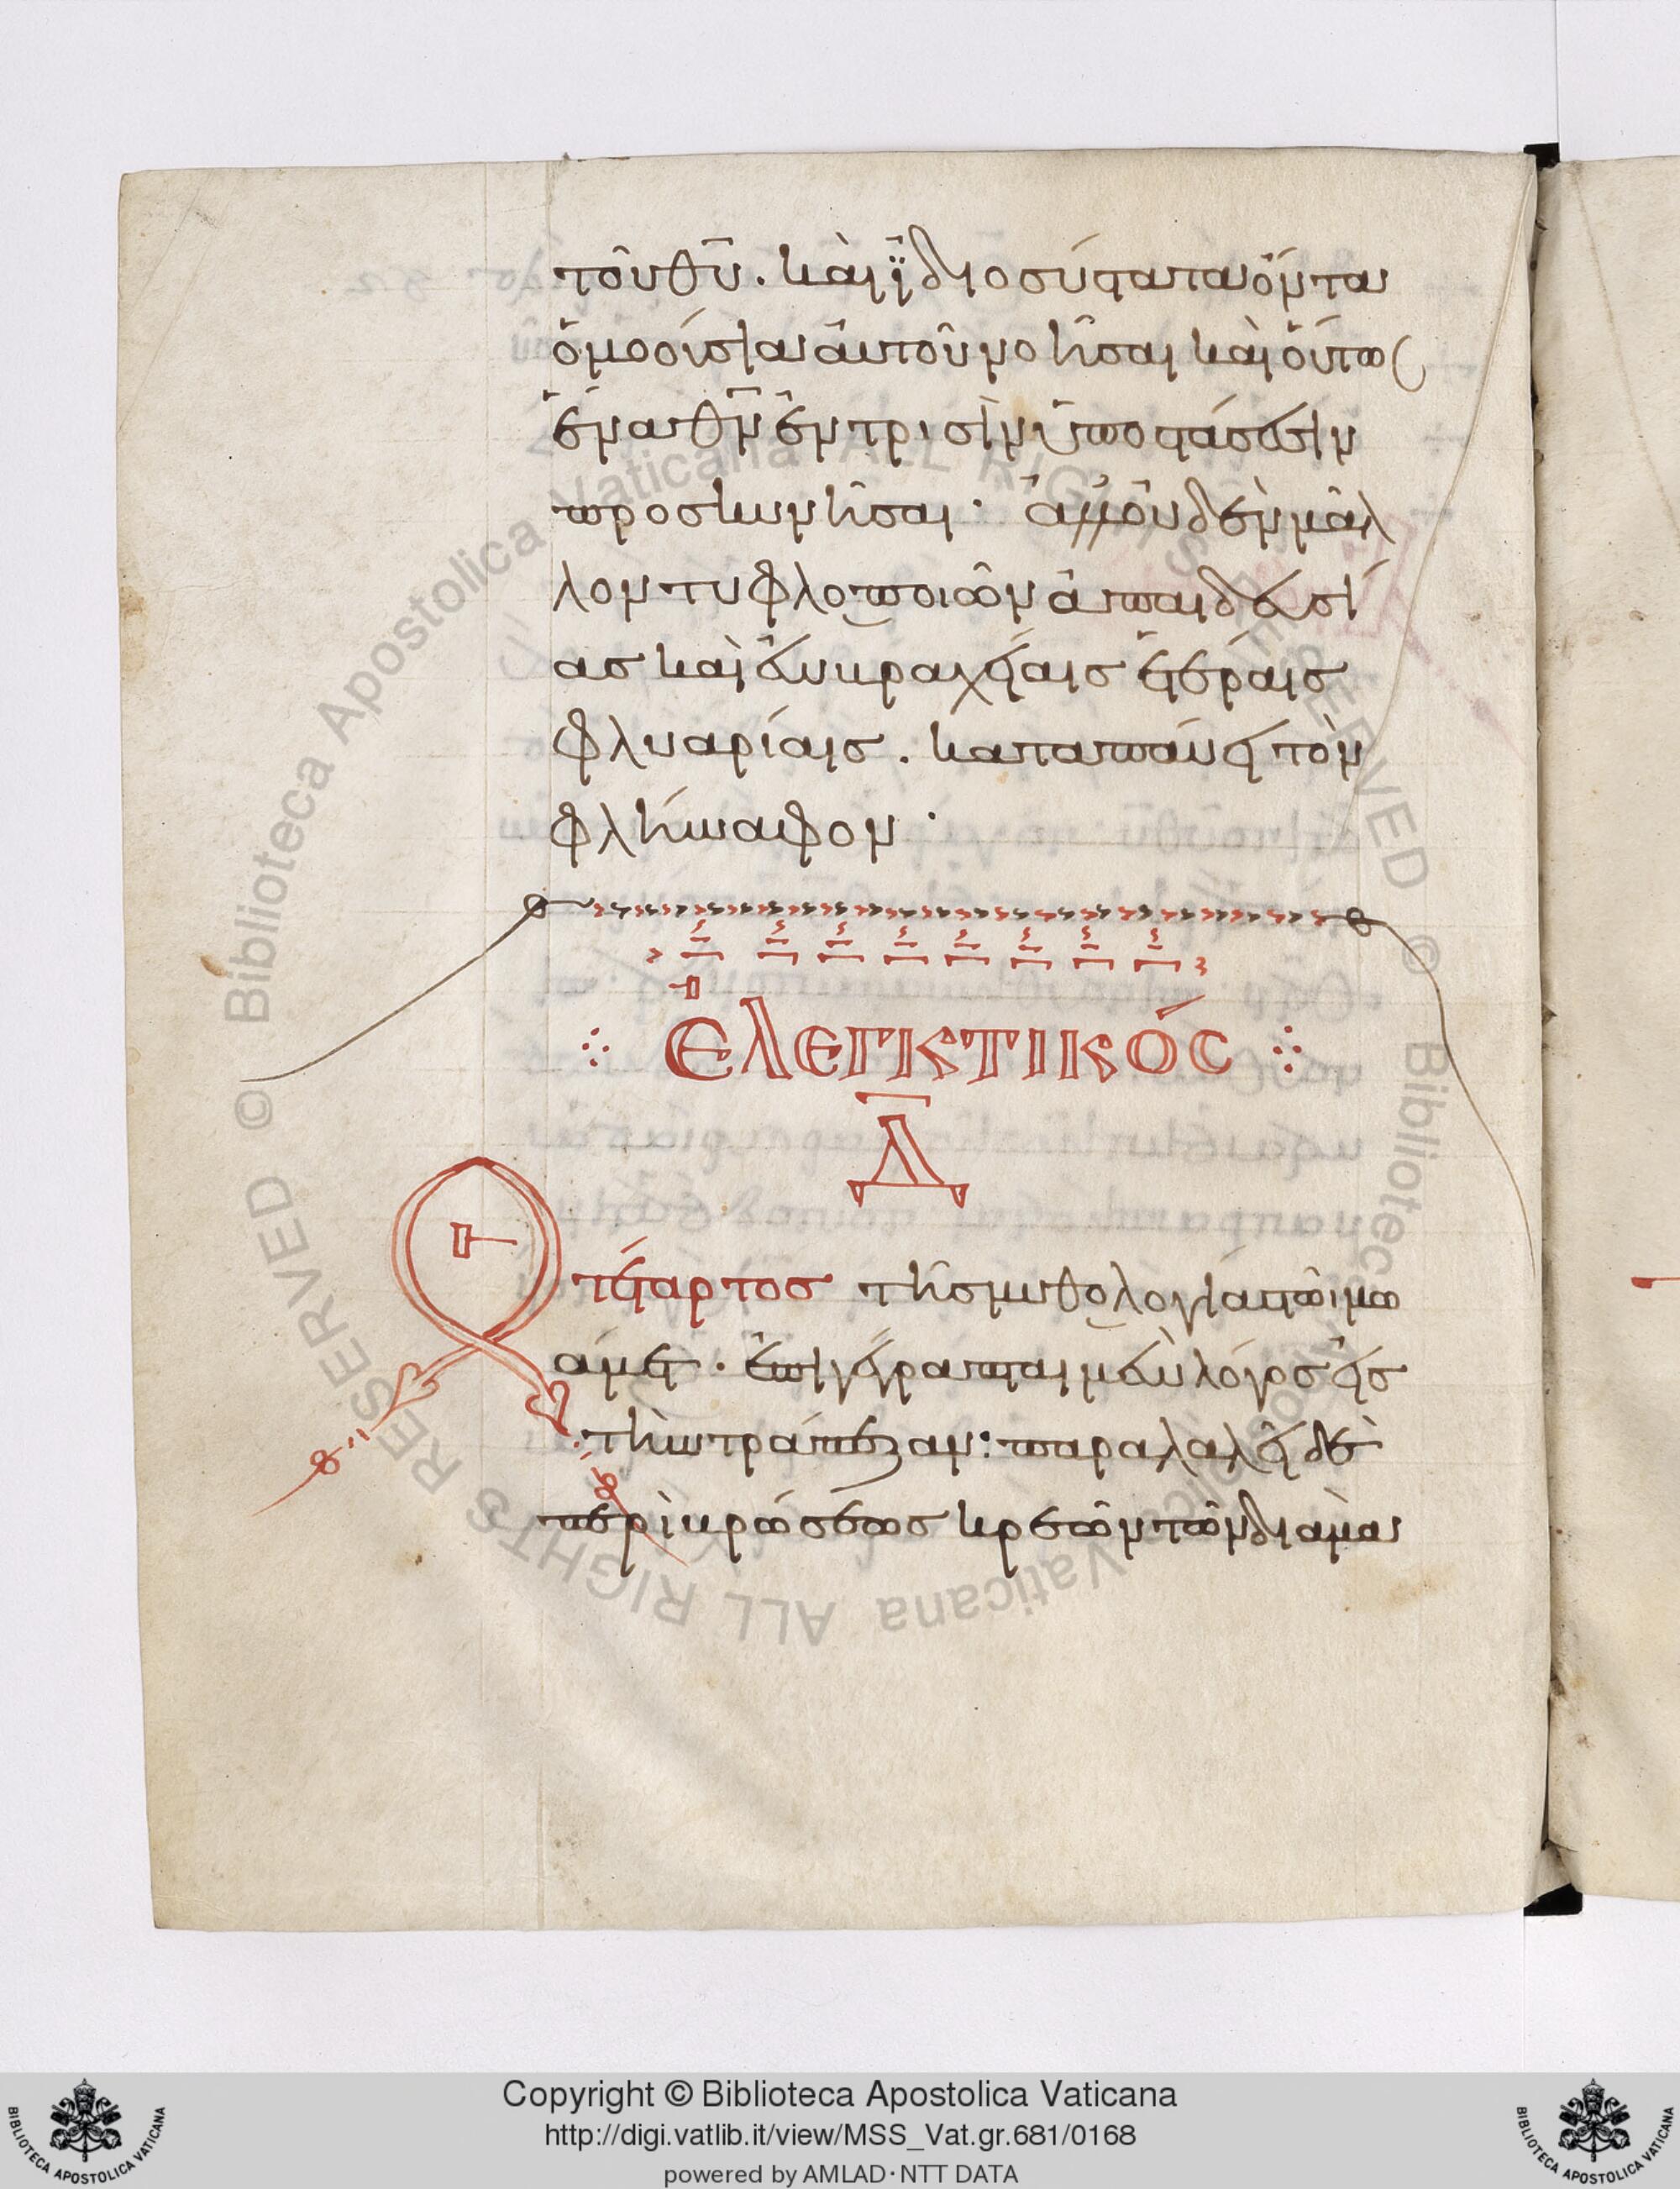 τοῦ θυ̅. καὶ ϊδιοσύστατα ὄντα
ὁμοούσια αὐτοῦ νοῆσαι καὶ οὕτως
ἕνα θν̅ ἐν τρισὶν ὑποστάσεσιν
προσκυνῆσαι· ἀλλ' οὐδὲν μᾶλ
λον τυφλοποιῶν ἀπαιδευσί
ας καὶ εὐκραχείαις ἑτέραις
φλυαρίαις. καταπαύει τὸν
φλήναφον·
ἐλεγκτικός
Δ̅
Ὁ
τέταρτος τῆς μυθολογία τῶι μω
άμετ. ἐπιγέγραπται μὲν λόγος εἰς
τὴν τράπεζαν: παραλαλεῖ δὲ
περὶ κρώσεως κρεῶν τῶν διανα
Copyright © Biblioteca Apostolica Vaticana
http://digi.vatlib.it/view/MSS_Vat.gr.681/0168
powered by AMLAD·NTT DATA